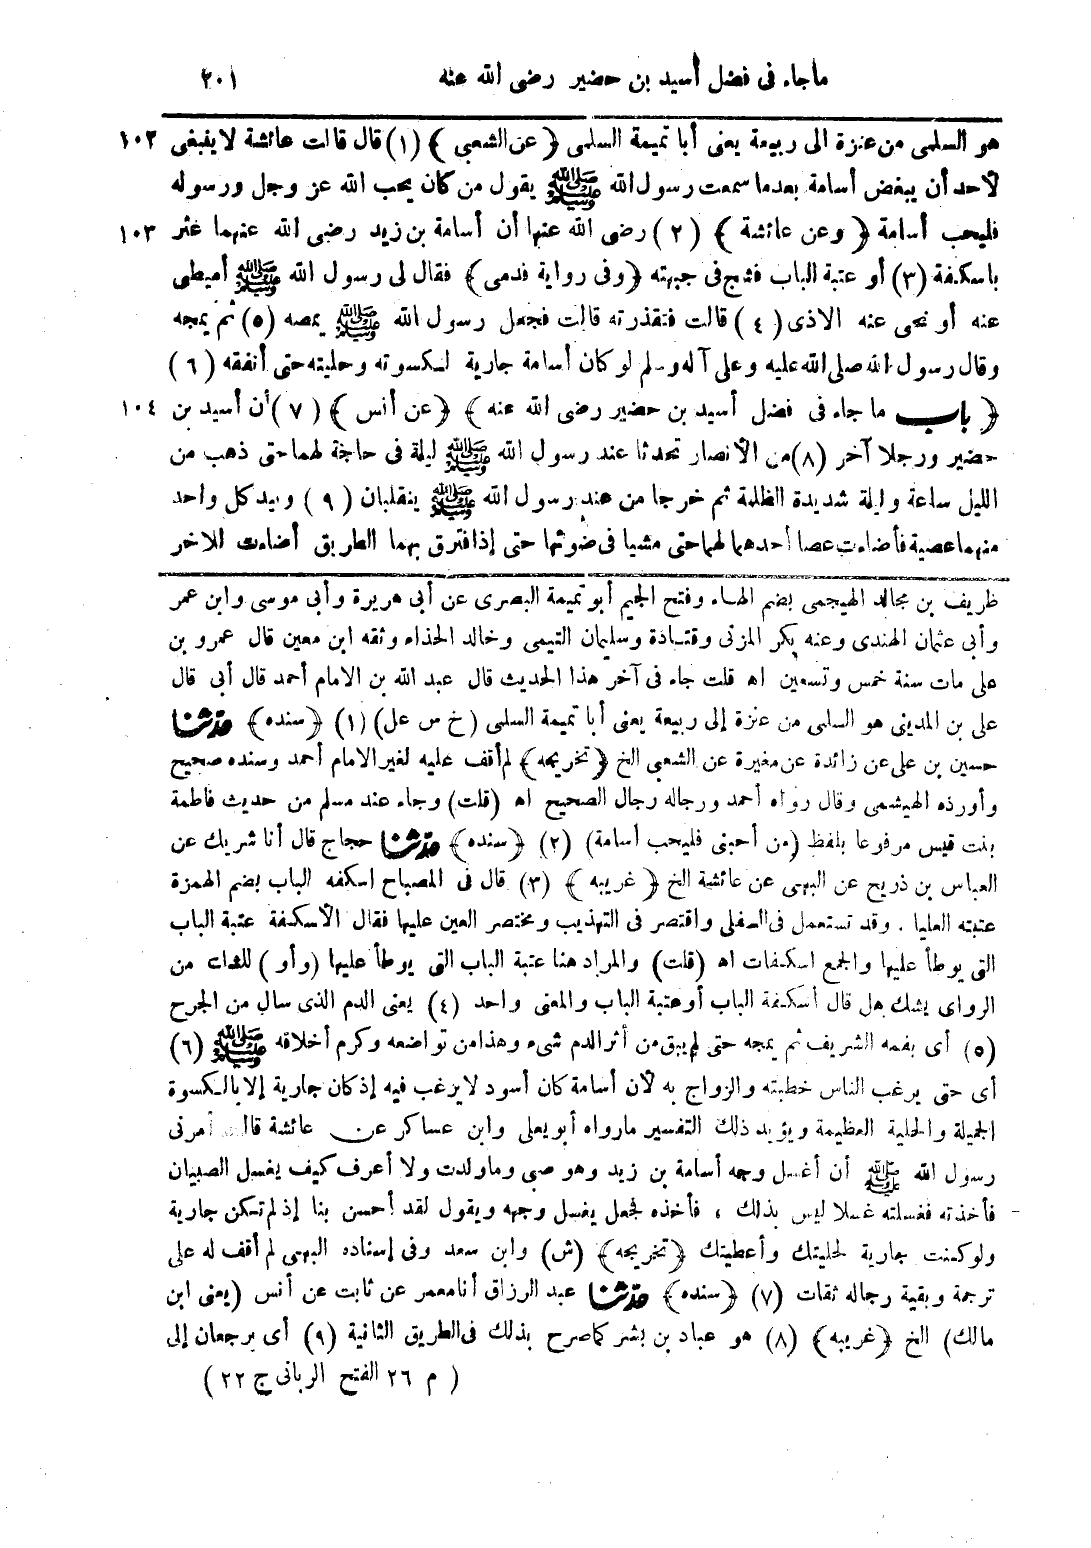 ماجاء فى فضل أسيد بن حضير رضى الله عنه ٢٠١
هو السلمى من عنزة الى ربيعة يعنى أبا تميمة السلمى ﴿عن الشعبى﴾ (١) قال قالت عائشة لا ينبغى ١٠٢
لأحد أن يبغض أسامة بعدما سمعت رسول الله ﷺ يقول من كان يحب الله عز وجل ورسوله
فليحب أسامة ﴿وعن عائشة﴾ (٢) رضى الله عنها أن أسامة بن زيد رضى الله عنهما عثر ١٠٣
باسكفة (٣) أو عتبة الباب فشج فى جبهته ﴿وفى رواية فدمى﴾ فقال لى رسول الله ﷺ أميطى
عنه أو نحى عنه الاذى (٤) قالت فتقذرته قالت فجعل رسول الله ﷺ يمصه (٥) ثم يمجه
وقال رسول الله صلى الله عليه وعلى آله وسلم لو كان أسامة جارية لكسوته وحليته حتى أنفقه (٦)
﴿باب ما جاء فى فضل أسيد بن حضير رضى الله عنه﴾ ﴿عن أنس﴾ (٧) أن أسيد بن ١٠٤
حضير ورجلا آخر (٨) من الأنصار تحدثا عند رسول الله ﷺ ليلة فى حاجة لهما حتى ذهب من
الليل ساعة وليلة شديدة الظلمة ثم خرجا من عند رسول الله ﷺ ينقلبان (٩) وبيد كل واحد
منهما عصية فأضاءت عصا أحدهما لهما حتى مشيا فى ضوئها حتى إذا فترق بهما الطريق أضاءت للاخر
ظريف بن مجالد الهيجمى بضم الهاء وفتح الجيم أبو تميمة البصرى عن أبى هريرة وأبى موسى وابن عمر
وأبى عثمان الهندى وعنه بكر المزنى وقتادة وسليمان التيمى وخالد الحذاء وثقه ابن معين قال عمرو بن
على مات سنة خمس وتسعين اه قلت جاء فى آخر هذا الحديث قال عبد الله بن الامام أحمد قال أبى قال
على بن المدينى هو السلمى من عنزة إلى ربيعة يعنى أبا تميمة السلمى (خ س عل) (١) ﴿سنده﴾ حدثنا
حسين بن على عن زائدة عن مغيرة عن الشعبى الخ ﴿تخريجه﴾ لم أقف عليه لغير الامام أحمد وسنده صحيح
وأورده الهيشمى وقال رواه أحمد ورجاله رجال الصحيح اه (قلت) وجاء عند مسلم من حديث فاطمة
بنت قيس مرفوعا بلفظ (من أحبنى فليحب أسامة) (٢) ﴿سنده﴾ حدثنا حجاج قال أنا شريك عن
العباس بن ذريح عن البهى عن عائشة الخ ﴿غريبه﴾ (٣) قال فى المصباح اسكفه الباب بضم الهمزة
عتبته العليا . وقد تستعمل فى السفلى واقتصر فى التهذيب ومختصر العين عليها فقال الأسكفة عتبة الباب
التى يوطأ عليها والجمع اسكفات اه (قلت) والمراد هنا عتبة الباب التى يوطأ عليها (وأو) للشك من
الرواى يشك هل قال أسكفة الباب أو عتبة الباب والمعنى واحد (٤) يعنى الدم الذى سال من الجرح
(٥) أى بفمه الشريف ثم يمجه حتى لم يبق من أثر الدم شىء وهذا من تواضعه وكرم أخلاقه ﷺ (٦)
أى حتى يرغب الناس خطبته والزواج به لأن أسامة كان أسود لا يرغب فيه إذ كان جارية إلا بالكسوة
الجميلة والحلية العظيمة ويؤيد ذلك التفسير مارواه أبو يعلى وابن عساكر عن عائشة قالت أمرنى
رسول الله ﷺ أن أغسل وجه أسامة بن زيد وهو صبى وما ولدت ولا أعرف كيف يغسل الصبيان
فأخذته فغسلته غسلا ليس بذلك ، فأخذه فجعل يغسل وجهه ويقول لقد أحسن بنا إذ لم تكن جارية
ولو كنت جارية لحليتك وأعطيتك ﴿تخريجه﴾ (ش) وابن سعد وفى إسناده البهى لم أقف له على
ترجمة وبقية رجاله ثقات (٧) ﴿سنده﴾ حدثنا عبد الرزاق أنا معمر عن ثابت عن أنس (يعنى ابن
مالك) الخ ﴿غريبه﴾ (٨) هو عباد بن بشر كما صرح بذلك فى الطريق الثانية (٩) أى يرجعان إلى
(م ٢٦ الفتح الربانى ج ٢٢)